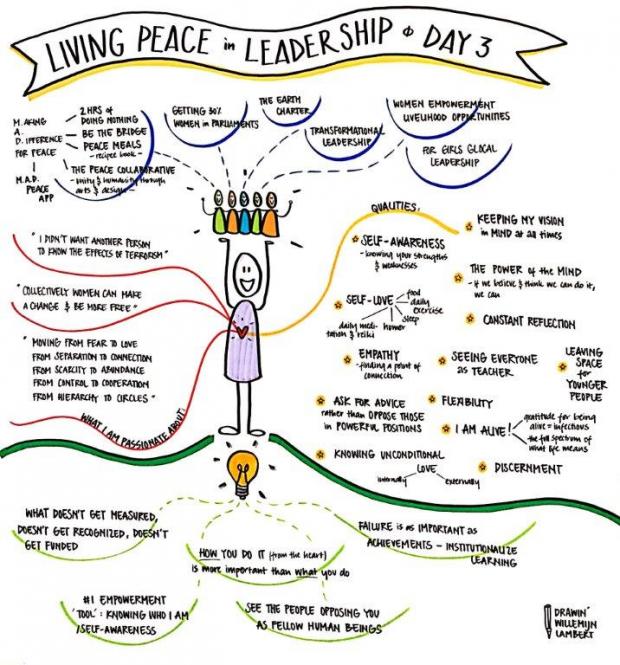 LIVING PEACE in LEADERSHIP & DAY 3
M.AKING
A.
D.IFFERENCE
FOR PEACE
M.A.D.
PEACE
APP
2HRS of
DOING NOTHING
BE THE BRIDGE
PEACE MEALS
- recipe book -
THE PEACE COLLABORATIVE
- unity & humanity through
arts & design -
GETTING 30%
WOMEN in PARLIAMENTS
THE EARTH
CHARTER
TRANSFORMATIONAL
LEADERSHIP
WOMEN EMPOWERMENT
LIVELIHOOD OPPORTUNITIES
FOR GIRLS GLOCAL
LEADERSHIP
"I DIDN'T WANT ANOTHER PERSON
TO KNOW THE EFFECTS OF TERRORISM"
"COLLECTIVELY WOMEN CAN MAKE
A CHANGE & BE MORE FREE"
"MOVING FROM FEAR TO LOVE
FROM SEPARATION TO CONNECTION
FROM SCARCITY TO ABUNDANCE
FROM CONTROL TO COOPERATION
FROM HIERARCHY TO CIRCLES"
WHAT I AM PASSIONATE ABOUT:
QUALITIES:
SELF-AWARENESS
- knowing your strengths
& weaknesses
SELF-LOVE
food
daily
exercise
sleep
humor
daily medi-
tation & reiki
EMPATHY
- finding a point of
connection
ASK FOR ADVICE
rather than OPPOSE THOSE
in POWERFUL POSITIONS
KNOWING UNCONDITIONAL
LOVE
internally
externally
KEEPING MY VISION
in MIND at all times
THE POWER of the MIND
- if we believe & think we can do it,
we can
CONSTANT REFLECTION
SEEING EVERYONE
as TEACHER
LEAVING
SPACE
for
YOUNGER
PEOPLE
FLEXIBILITY
I AM ALIVE!
gratitude for being
alive = infectious
the full spectrum of
what life means
DISCERNMENT
WHAT DOESN'T GET MEASURED,
DOESN'T GET RECOGNIZED, DOESN'T
GET FUNDED
HOW YOU DO IT (from the heart)
is more important than what you do
FAILURE is as IMPORTANT as
ACHIEVEMENTS - INSTITUTIONALIZE
LEARNING
#1 EMPOWERMENT
'TOOL': KNOWING WHO I AM
/SELF-AWARENESS
SEE THE PEOPLE OPPOSING YOU
AS FELLOW HUMAN BEINGS
DRAWIN'
WILLEMIJN
LAMBERT